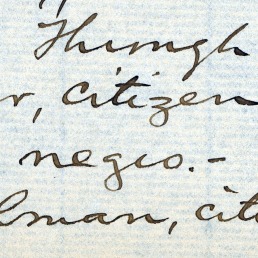 Through
r, citizen
negro.-
lman, cit